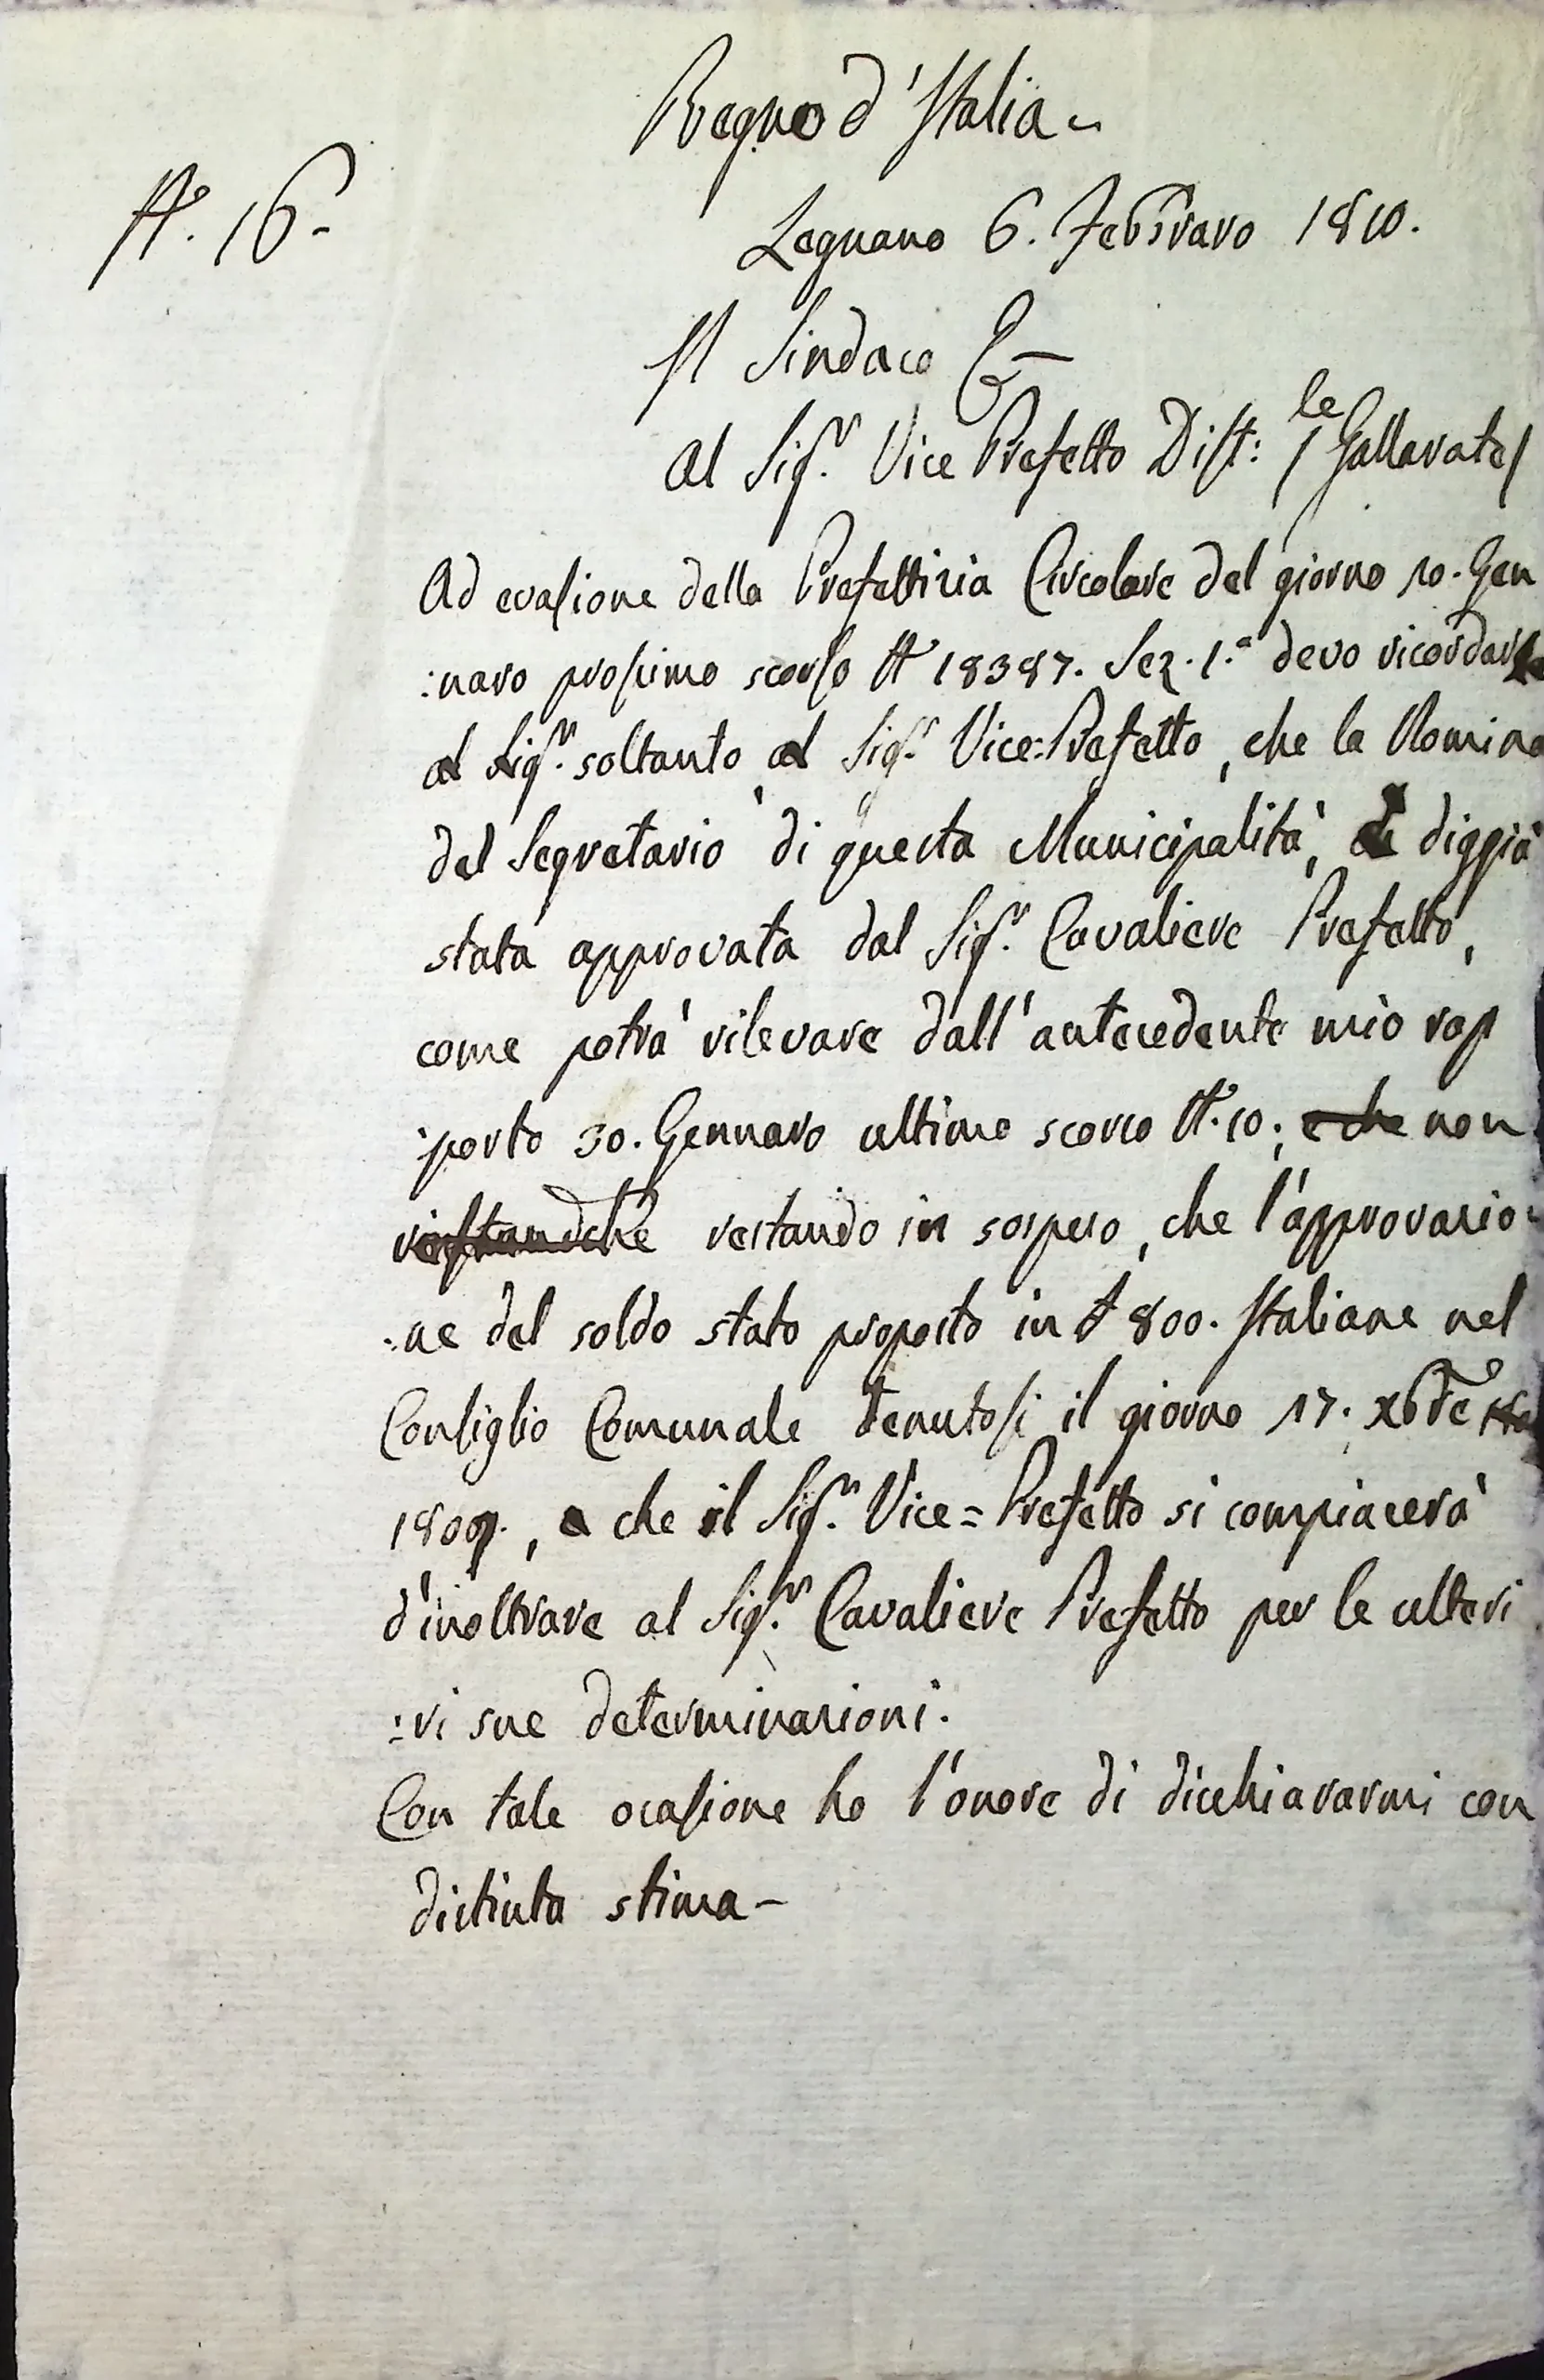 Regno d'Italia -
N.° 16 -
Legnano 6. Febbraro 1810.
Il Sindaco
Al Sig.r Vice Prefetto Dist:le / Gallarate /
Ad evasione della Prefettizia Circolare del giorno 10. Gen
:naro prossimo scorso N.° 18387. Sez. 1.a devo ricordar
al Sig.r soltanto al Sig.r Vice-Prefetto, che la Nomina
del Segretario di questa Municipalità, è diggià
stata approvata dal Sig.r Cavaliere Prefetto,
come potrà rilevare dall'antecedente mio rap
porto 30. Gennaro ultimo scorso N.° 10; e che non
restando in sospeso, che l'approvazio:
:ne del soldo stato proposto in £ 800. Italiane nel
Consiglio Comunale tenutosi il giorno 17. Xbre
1809., e che il Sig.r Vice=Prefetto si compiacerà
d'inoltrare al Sig.r Cavaliere Prefetto per le ulteri
:ri sue determinazioni.
Con tale ocasione ho l'onore di dicchiararmi con
distinta stima -